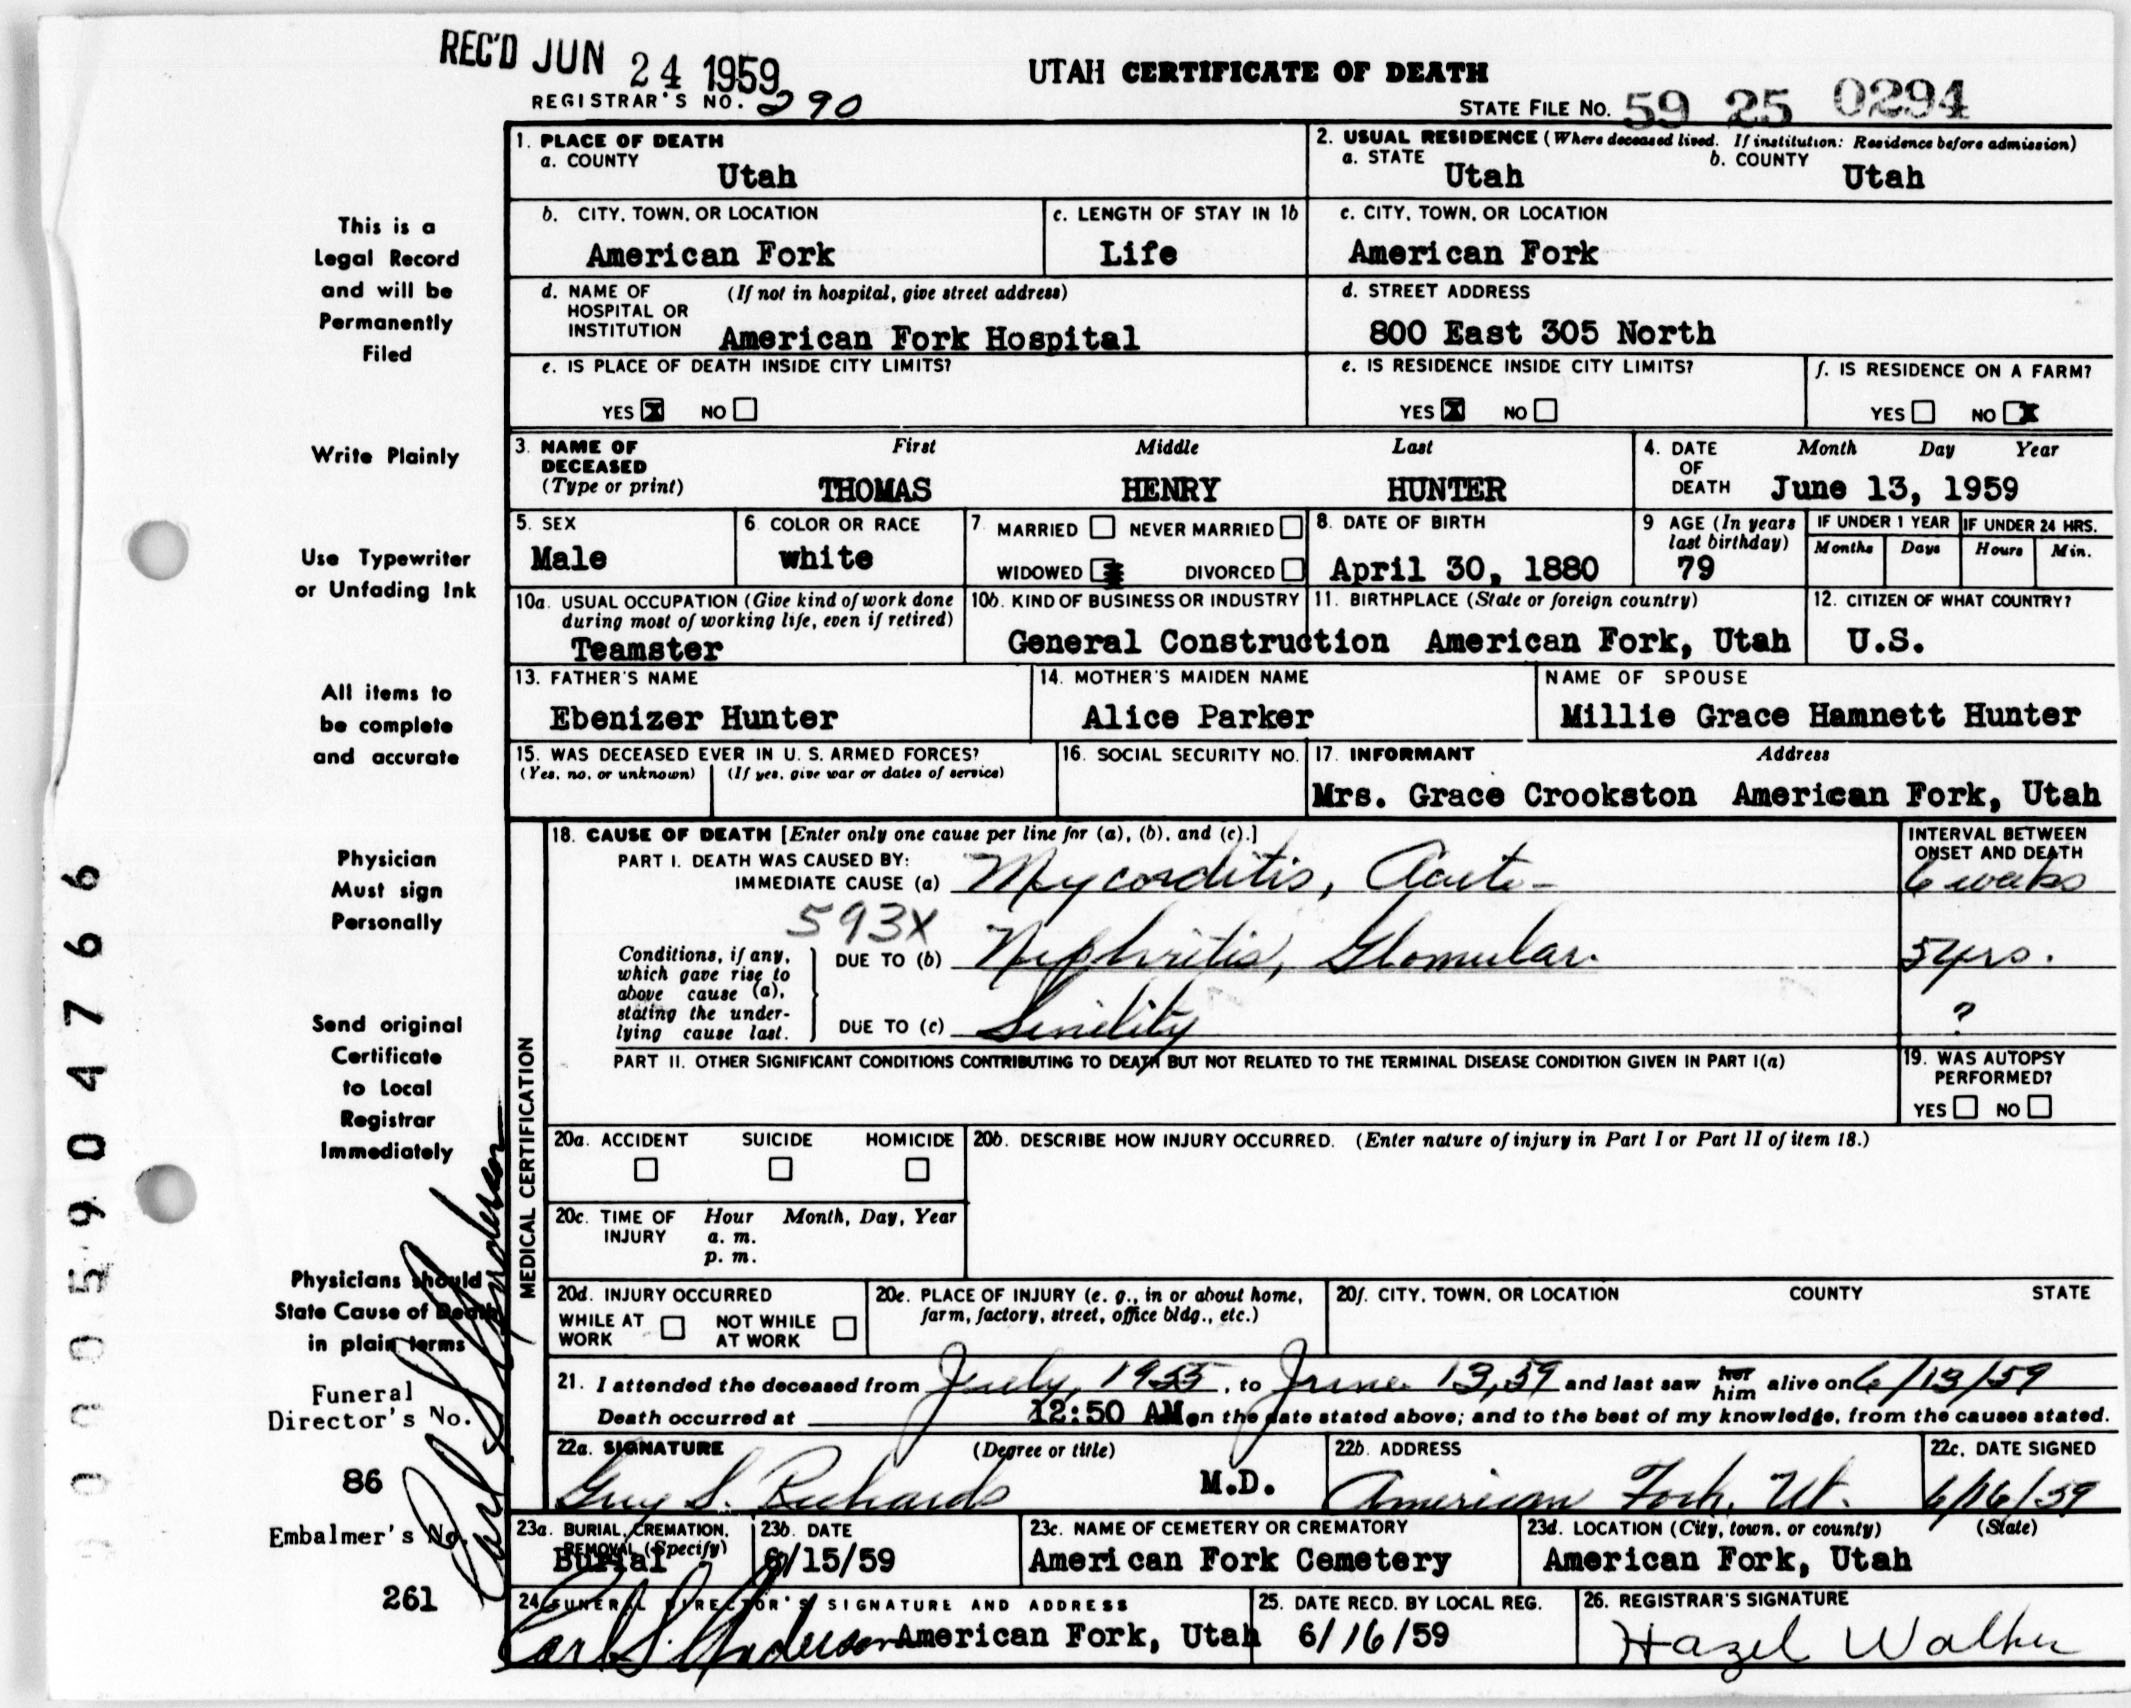 REC'D JUN 24 1959
UTAH CERTIFICATE OF DEATH
REGISTRAR'S NO. 290
STATE FILE NO. 59 25 0294
1. PLACE OF DEATH
a. COUNTY
Utah
2. USUAL RESIDENCE (Where deceased lived. If institution: Residence before admission)
a. STATE Utah b. COUNTY Utah
b. CITY, TOWN, OR LOCATION
American Fork
c. LENGTH OF STAY IN 1b
Life
c. CITY, TOWN, OR LOCATION
American Fork
d. NAME OF (If not in hospital, give street address)
HOSPITAL OR
INSTITUTION American Fork Hospital
d. STREET ADDRESS
800 East 305 North
e. IS PLACE OF DEATH INSIDE CITY LIMITS?
YES X NO
e. IS RESIDENCE INSIDE CITY LIMITS?
YES X NO
f. IS RESIDENCE ON A FARM?
YES NO X
3. NAME OF DECEASED (Type or print)
First Middle Last
THOMAS HENRY HUNTER
4. DATE OF DEATH Month Day Year
June 13, 1959
5. SEX
Male
6. COLOR OR RACE
white
7. MARRIED NEVER MARRIED
WIDOWED X DIVORCED
8. DATE OF BIRTH
April 30, 1880
9 AGE (In years last birthday)
79
IF UNDER 1 YEAR
Months Days
IF UNDER 24 HRS.
Hours Min.
10a. USUAL OCCUPATION (Give kind of work done
during most of working life, even if retired)
Teamster
10b. KIND OF BUSINESS OR INDUSTRY
General Construction
11. BIRTHPLACE (State or foreign country)
American Fork, Utah
12. CITIZEN OF WHAT COUNTRY?
U.S.
13. FATHER'S NAME
Ebenizer Hunter
14. MOTHER'S MAIDEN NAME
Alice Parker
NAME OF SPOUSE
Millie Grace Hamnett Hunter
15. WAS DECEASED EVER IN U. S. ARMED FORCES?
(Yes, no, or unknown) (If yes, give war or dates of service)
16. SOCIAL SECURITY NO.
17. INFORMANT Address
Mrs. Grace Crookston American Fork, Utah
MEDICAL CERTIFICATION
18. CAUSE OF DEATH [Enter only one cause per line for (a), (b), and (c).]
INTERVAL BETWEEN
ONSET AND DEATH
PART I. DEATH WAS CAUSED BY:
IMMEDIATE CAUSE (a) Mycorditis, Acute - 6 weeks
593X
Conditions, if any,
which gave rise to
above cause (a),
stating the under-
lying cause last.
DUE TO (b) Nephritis, Glomular. 5 yrs.
DUE TO (c) Senility ?
PART II. OTHER SIGNIFICANT CONDITIONS CONTRIBUTING TO DEATH BUT NOT RELATED TO THE TERMINAL DISEASE CONDITION GIVEN IN PART I(a)
19. WAS AUTOPSY
PERFORMED?
YES NO
20a. ACCIDENT SUICIDE HOMICIDE
20b. DESCRIBE HOW INJURY OCCURRED. (Enter nature of injury in Part I or Part II of item 18.)
20c. TIME OF INJURY Hour Month, Day, Year
a. m.
p. m.
20d. INJURY OCCURRED
WHILE AT WORK NOT WHILE AT WORK
20e. PLACE OF INJURY (e. g., in or about home,
farm, factory, street, office bldg., etc.)
20f. CITY, TOWN, OR LOCATION COUNTY STATE
21. I attended the deceased from July, 1955, to June 13, 59 and last saw her him alive on 6/13/59
Death occurred at 12:50 AM on the date stated above; and to the best of my knowledge, from the causes stated.
22a. SIGNATURE (Degree or title)
Guy S. Richards M.D.
22b. ADDRESS
American Fork, Ut.
22c. DATE SIGNED
6/16/59
23a. BURIAL, CREMATION,
REMOVAL (Specify)
Burial
23b. DATE
6/15/59
23c. NAME OF CEMETERY OR CREMATORY
American Fork Cemetery
23d. LOCATION (City, town, or county) (State)
American Fork, Utah
24. FUNERAL DIRECTOR'S SIGNATURE AND ADDRESS
Earl S. Anderson American Fork, Utah
25. DATE RECD. BY LOCAL REG.
6/16/59
26. REGISTRAR'S SIGNATURE
Hazel Walker
This is a
Legal Record
and will be
Permanently
Filed
Write Plainly
Use Typewriter
or Unfading Ink
All items to
be complete
and accurate
Physician
Must sign
Personally
Send original
Certificate
to Local
Registrar
Immediately
Physicians should
State Cause of Death
in plain terms
Funeral
Director's No.
86
Embalmer's No.
261
Earl S Anderson
0005904766